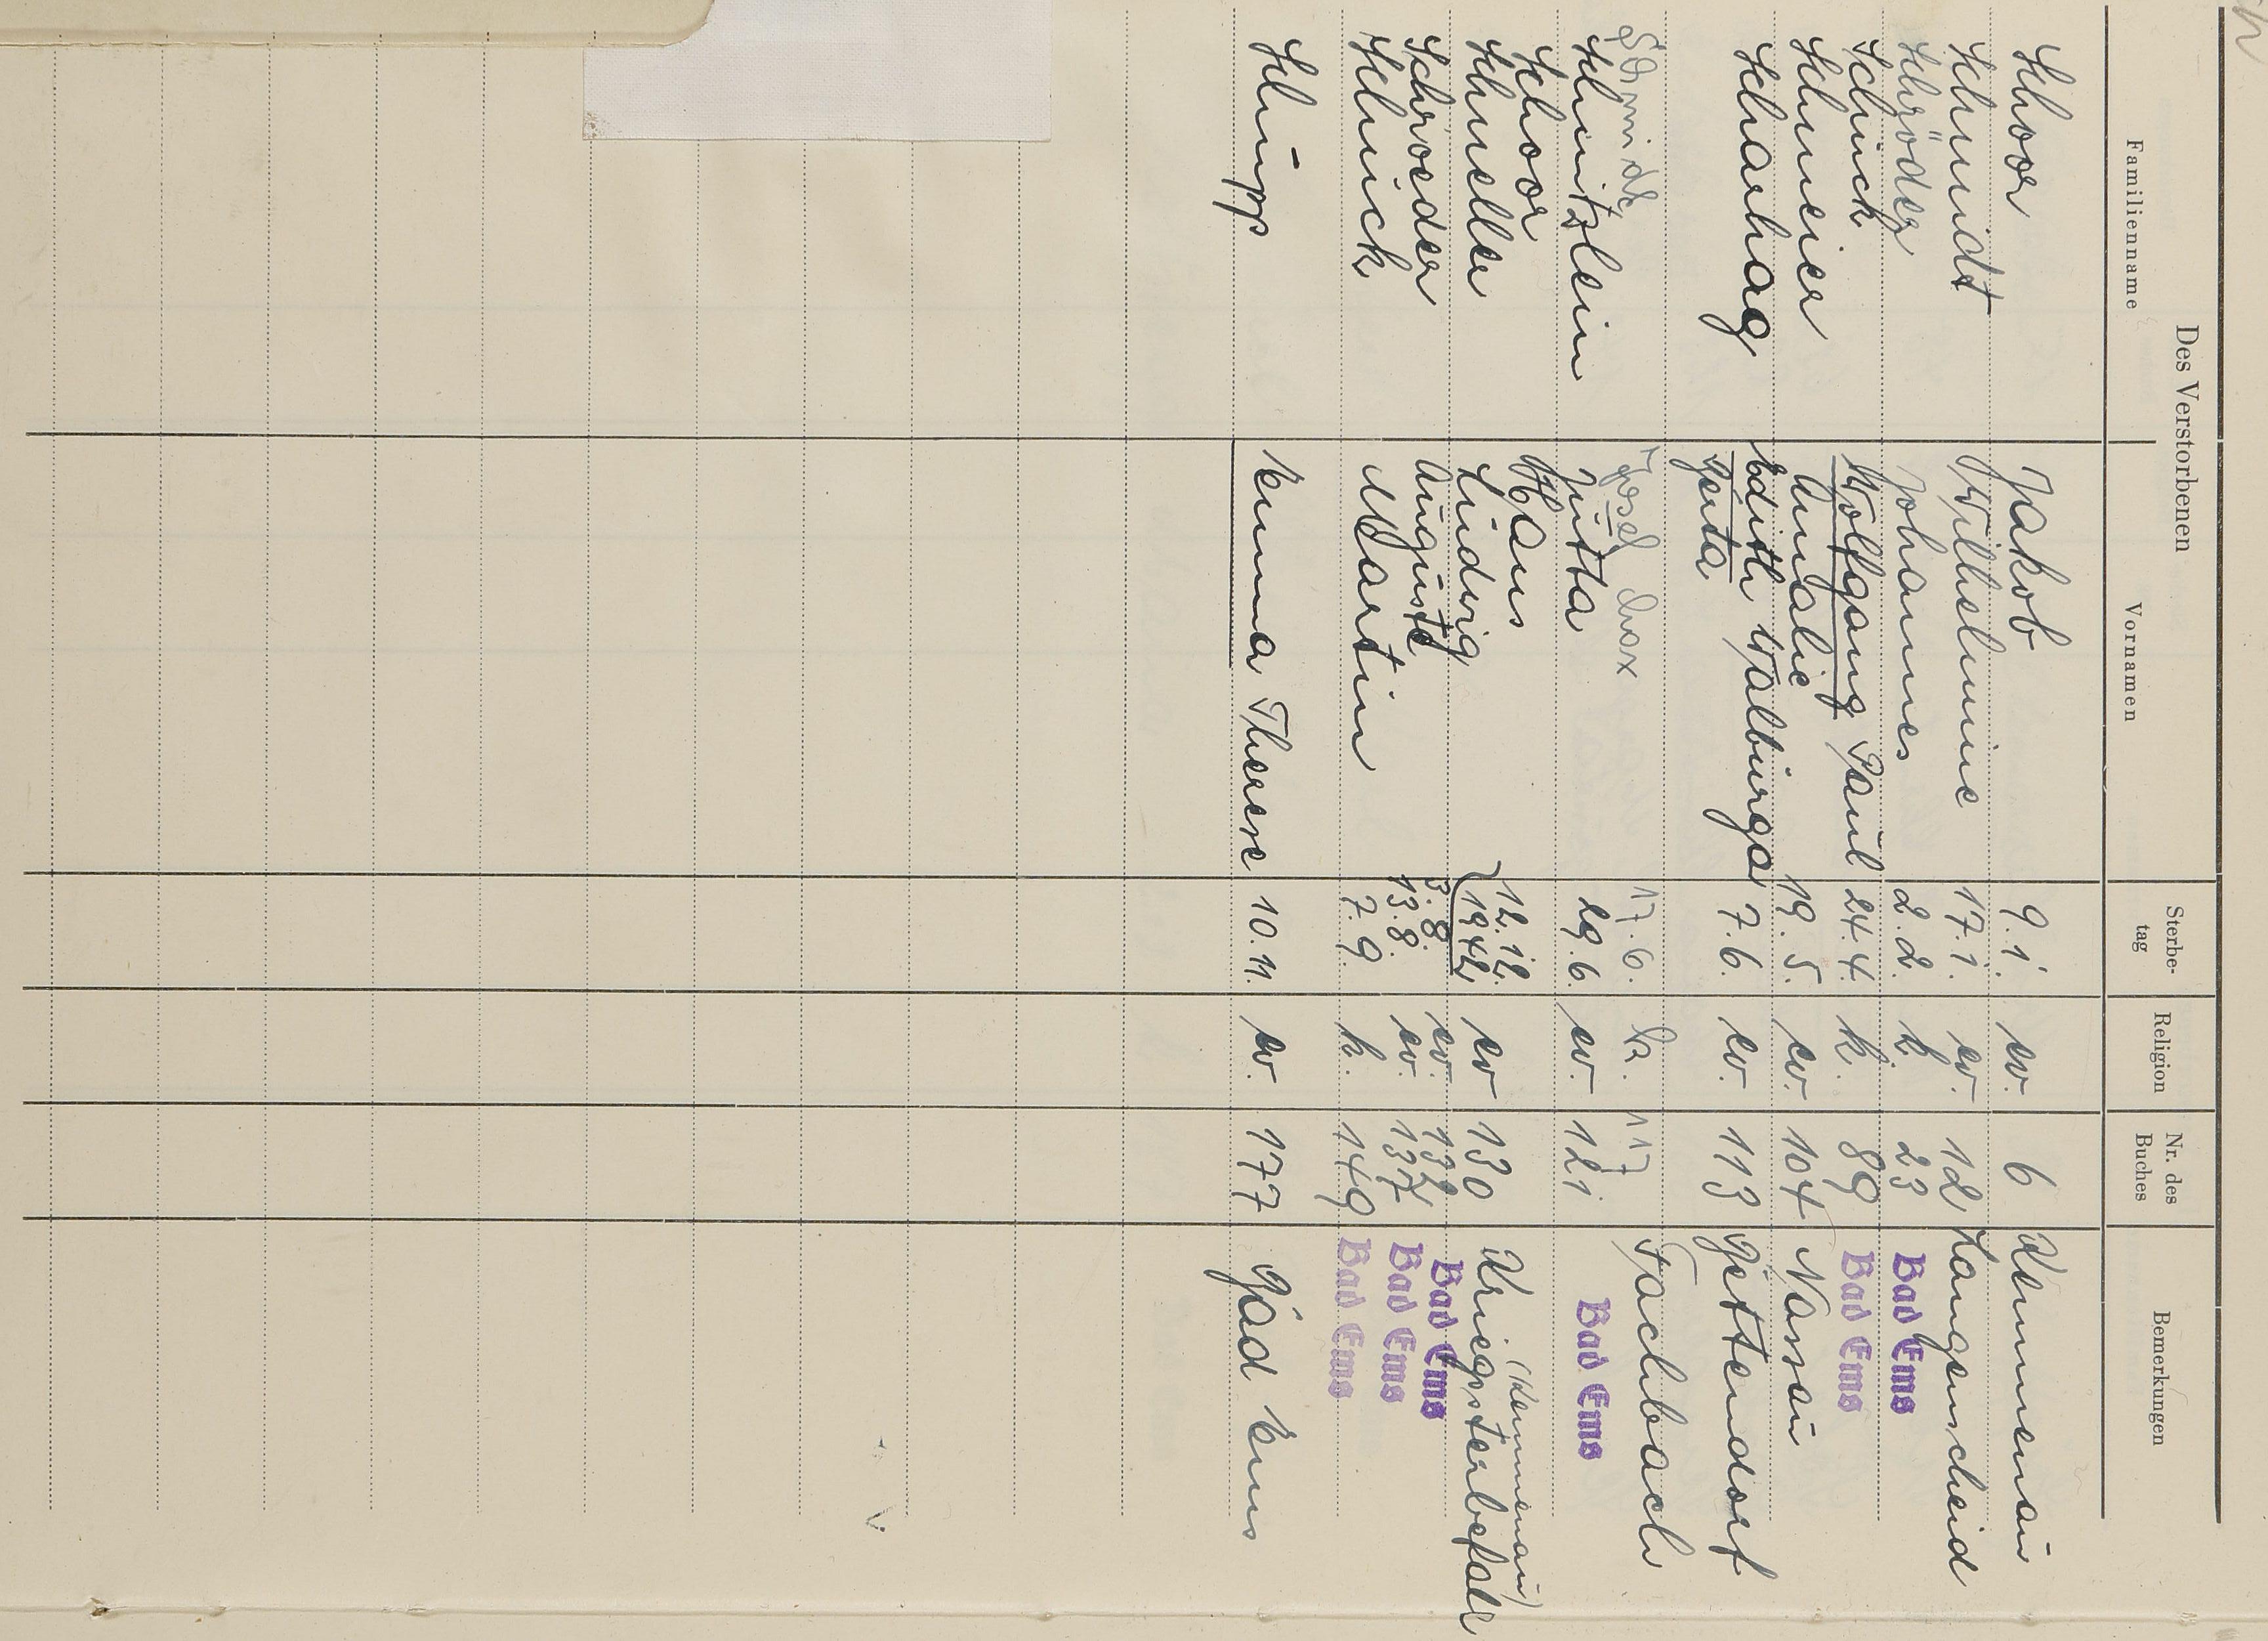 Des Verstorbenen
Familienname Vornamen Sterbe-tag Religion Nr. des Buches Bemerkungen
Schoor Jakob 9.1. ev. 6 Kemmenau
Schmidt Wilhelmine 17.1. ev. 12 Langenscheid
Schröder Johannes 2.2. k. 23 Bad Ems
Schück Wolfgang Paul 24.4. k. 89 Bad Ems
Schmeier Amalie 19.5. ev. 104 Nassau
Scharhag Edith Walburga 7.6. ev. 113 Geisig Dettendorf
Gerta
Schmidt Josef Max 17.6. k. 117 Fachbach
Schnitzlein Jutta 29.6. ev. 121 Bad Ems
Schoor Hans 12.12. 1942 ev 130 Kriegssterbefall (Kemmenau)
Schneller Ludwig 3.8. ev. 132 Bad Ems
Schroeder Auguste 13.8. ev. 137 Bad Ems
Schück Martin 7.9. k. 149 Bad Ems
Schupp Emma Therese 10.11. ev. 177 Bad Ems